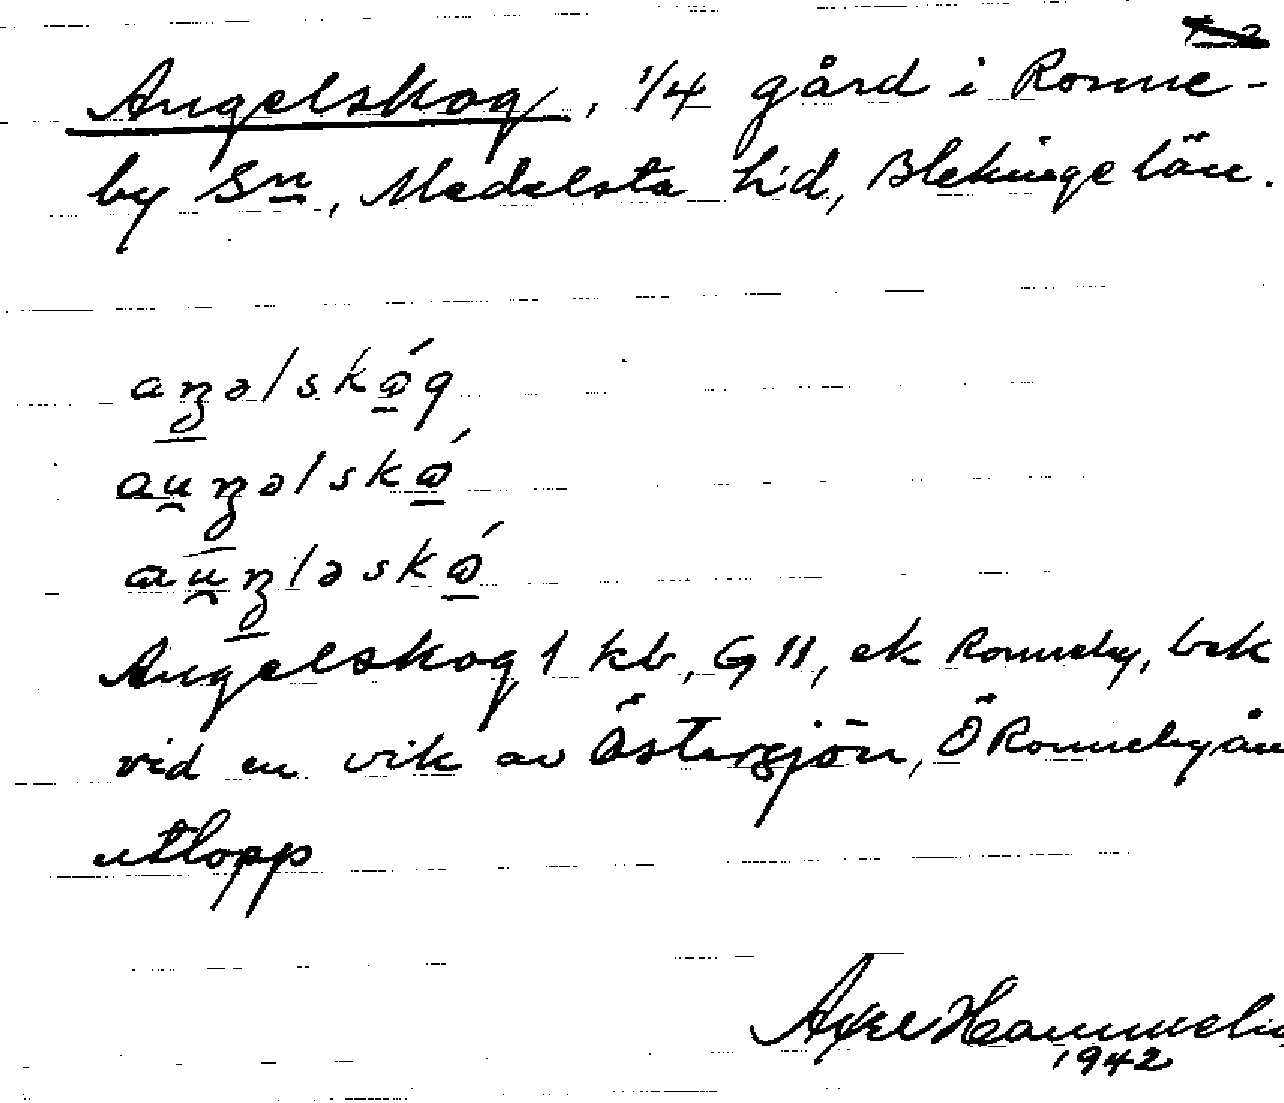 Angelskog, 1/4 gård i Ronne-
by Sn, Medelsta hd, Blekinge län.
aŋəlskǫ́g
au̯ŋəlskǫ́
au̯ŋləskǫ́
Angelskog 1 kb, G 11, ek Ronneby, bek
vid en vik av Östersjön, Ö Ronnebyån
utlopp
Axel
1942